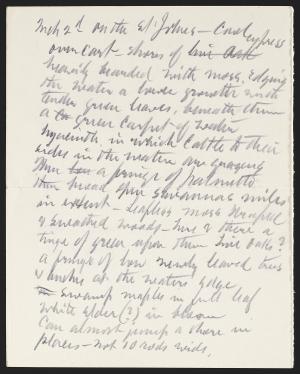 Mch 2d on the St Johns - Cool
cypress
overcast - shores of live oak
heavily bearded with moss. Edging
the water a lower growth with
tender green leaves, beneath them
a green carpet of water
hyacinth in which cattle to their
sides in the water are grazing
then a fringe of palmetto
then broad open savannas miles
in extent - leafless moss draped
& swathed woods - here & there a
tinge of green upon them live oaks?
a fringe of low newly leaved trees
& bushes at the waters edge
swamp maples in full leaf
white alder (?) in bloom
Can almost jump a shore in
places - not 10 rods wide.